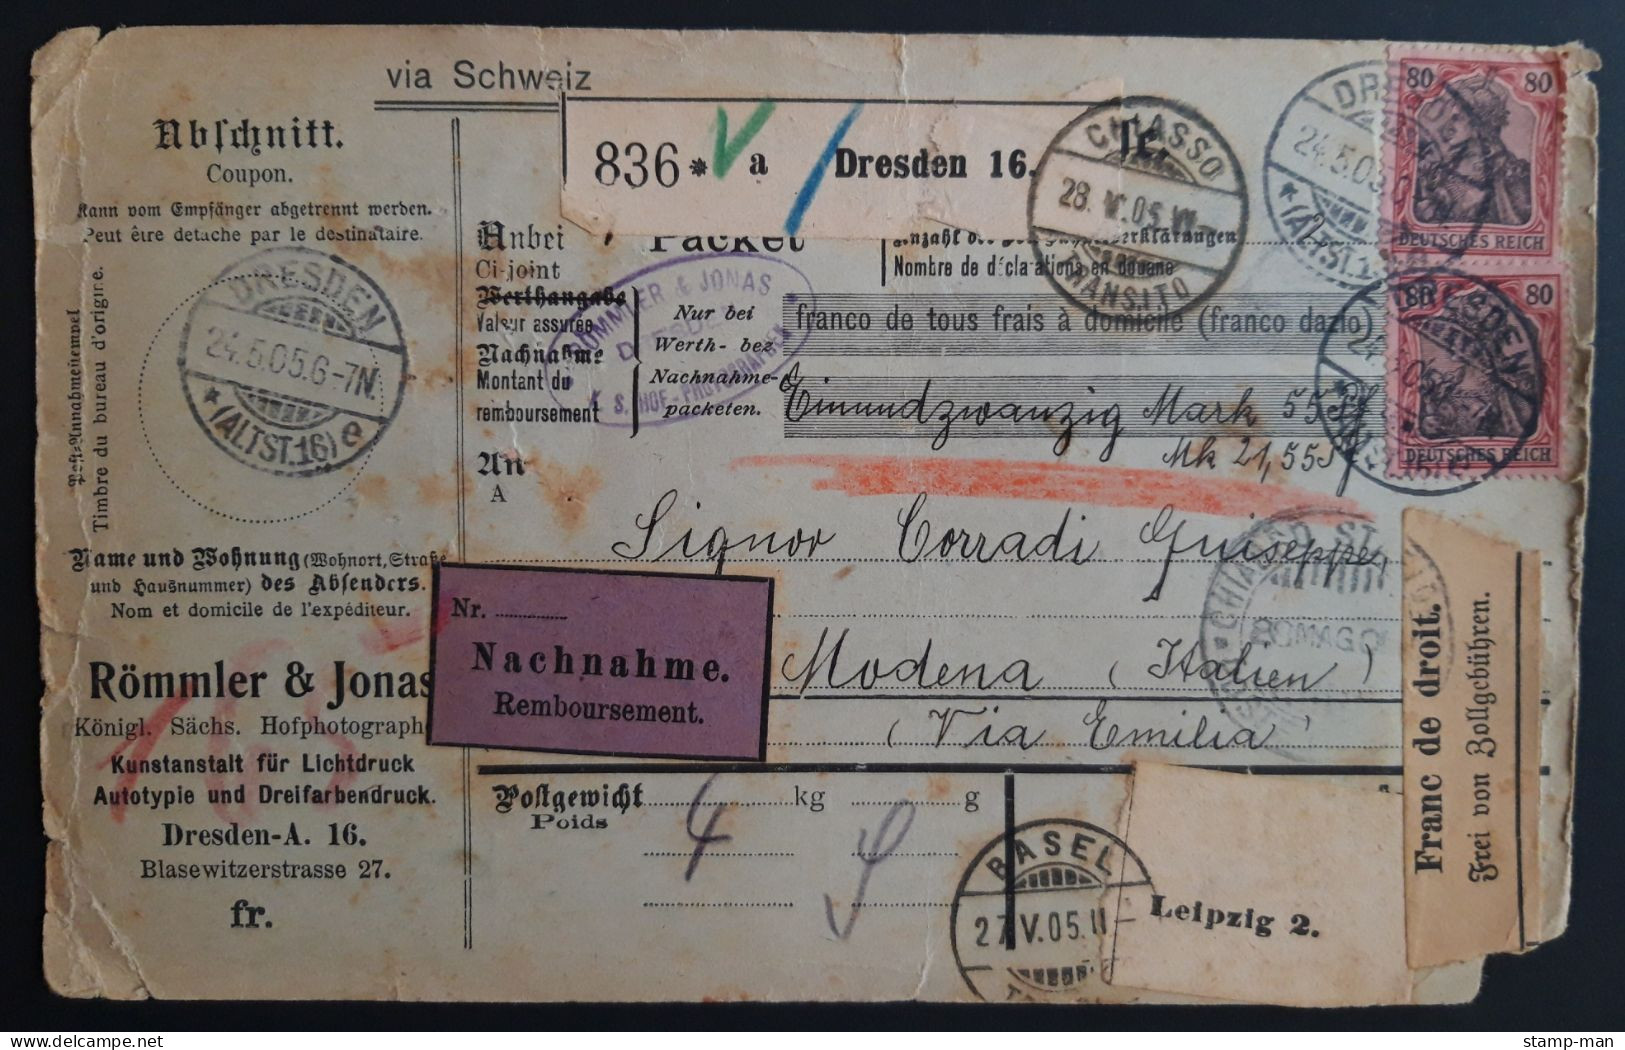 via Schweiz
Abschnitt.
Coupon.
Kann vom Empfänger abgetrennt werden.
Peut être detache par le destinataire.
Post-Annahmestempel
Timbre du bureau d'origine.
DRESDEN
24.5.05.6-7N.
* (ALTST.16) e
836 * a Dresden 16.
fr.
CHIASSO
28. V.05.
TRANSITO
DRESDEN
24.5.05
* (ALTST.16)
80 80
DEUTSCHES REICH
80 80
DEUTSCHES REICH
Anbei
Ci-joint
Packet
Anzahl der
Nombre de déclarations en douane
Werthangabe
Valeur assurée
Nachnahme
Montant du
remboursement
Nur bei
Werth- bez.
Nachnahme-
packeten.
RÖMMLER & JONAS
DRESDEN
K. S. HOF-PHOTOGRAPHEN
franco de tous frais à domicile (franco dazio)
Einundzwanzig Mark 55
Mk 21,55
An
A
Signor Corradi Guiseppe
Modena (Italien)
(Via Emilia)
Name und Wohnung (Wohnort, Straße
und Hausnummer) des Absenders.
Nom et domicile de l'expéditeur.
Nr.
Nachnahme.
Remboursement.
Römmler & Jonas
Königl. Sächs. Hofphotograph
Kunstanstalt für Lichtdruck
Autotypie und Dreifarbendruck.
Dresden-A. 16.
Blasewitzerstrasse 27.
fr.
Postgewicht kg g
Poids
4
BASEL
27.V.05.11
Leipzig 2.
Franc de droit.
Frei von Zollgebühren.
stamp-man